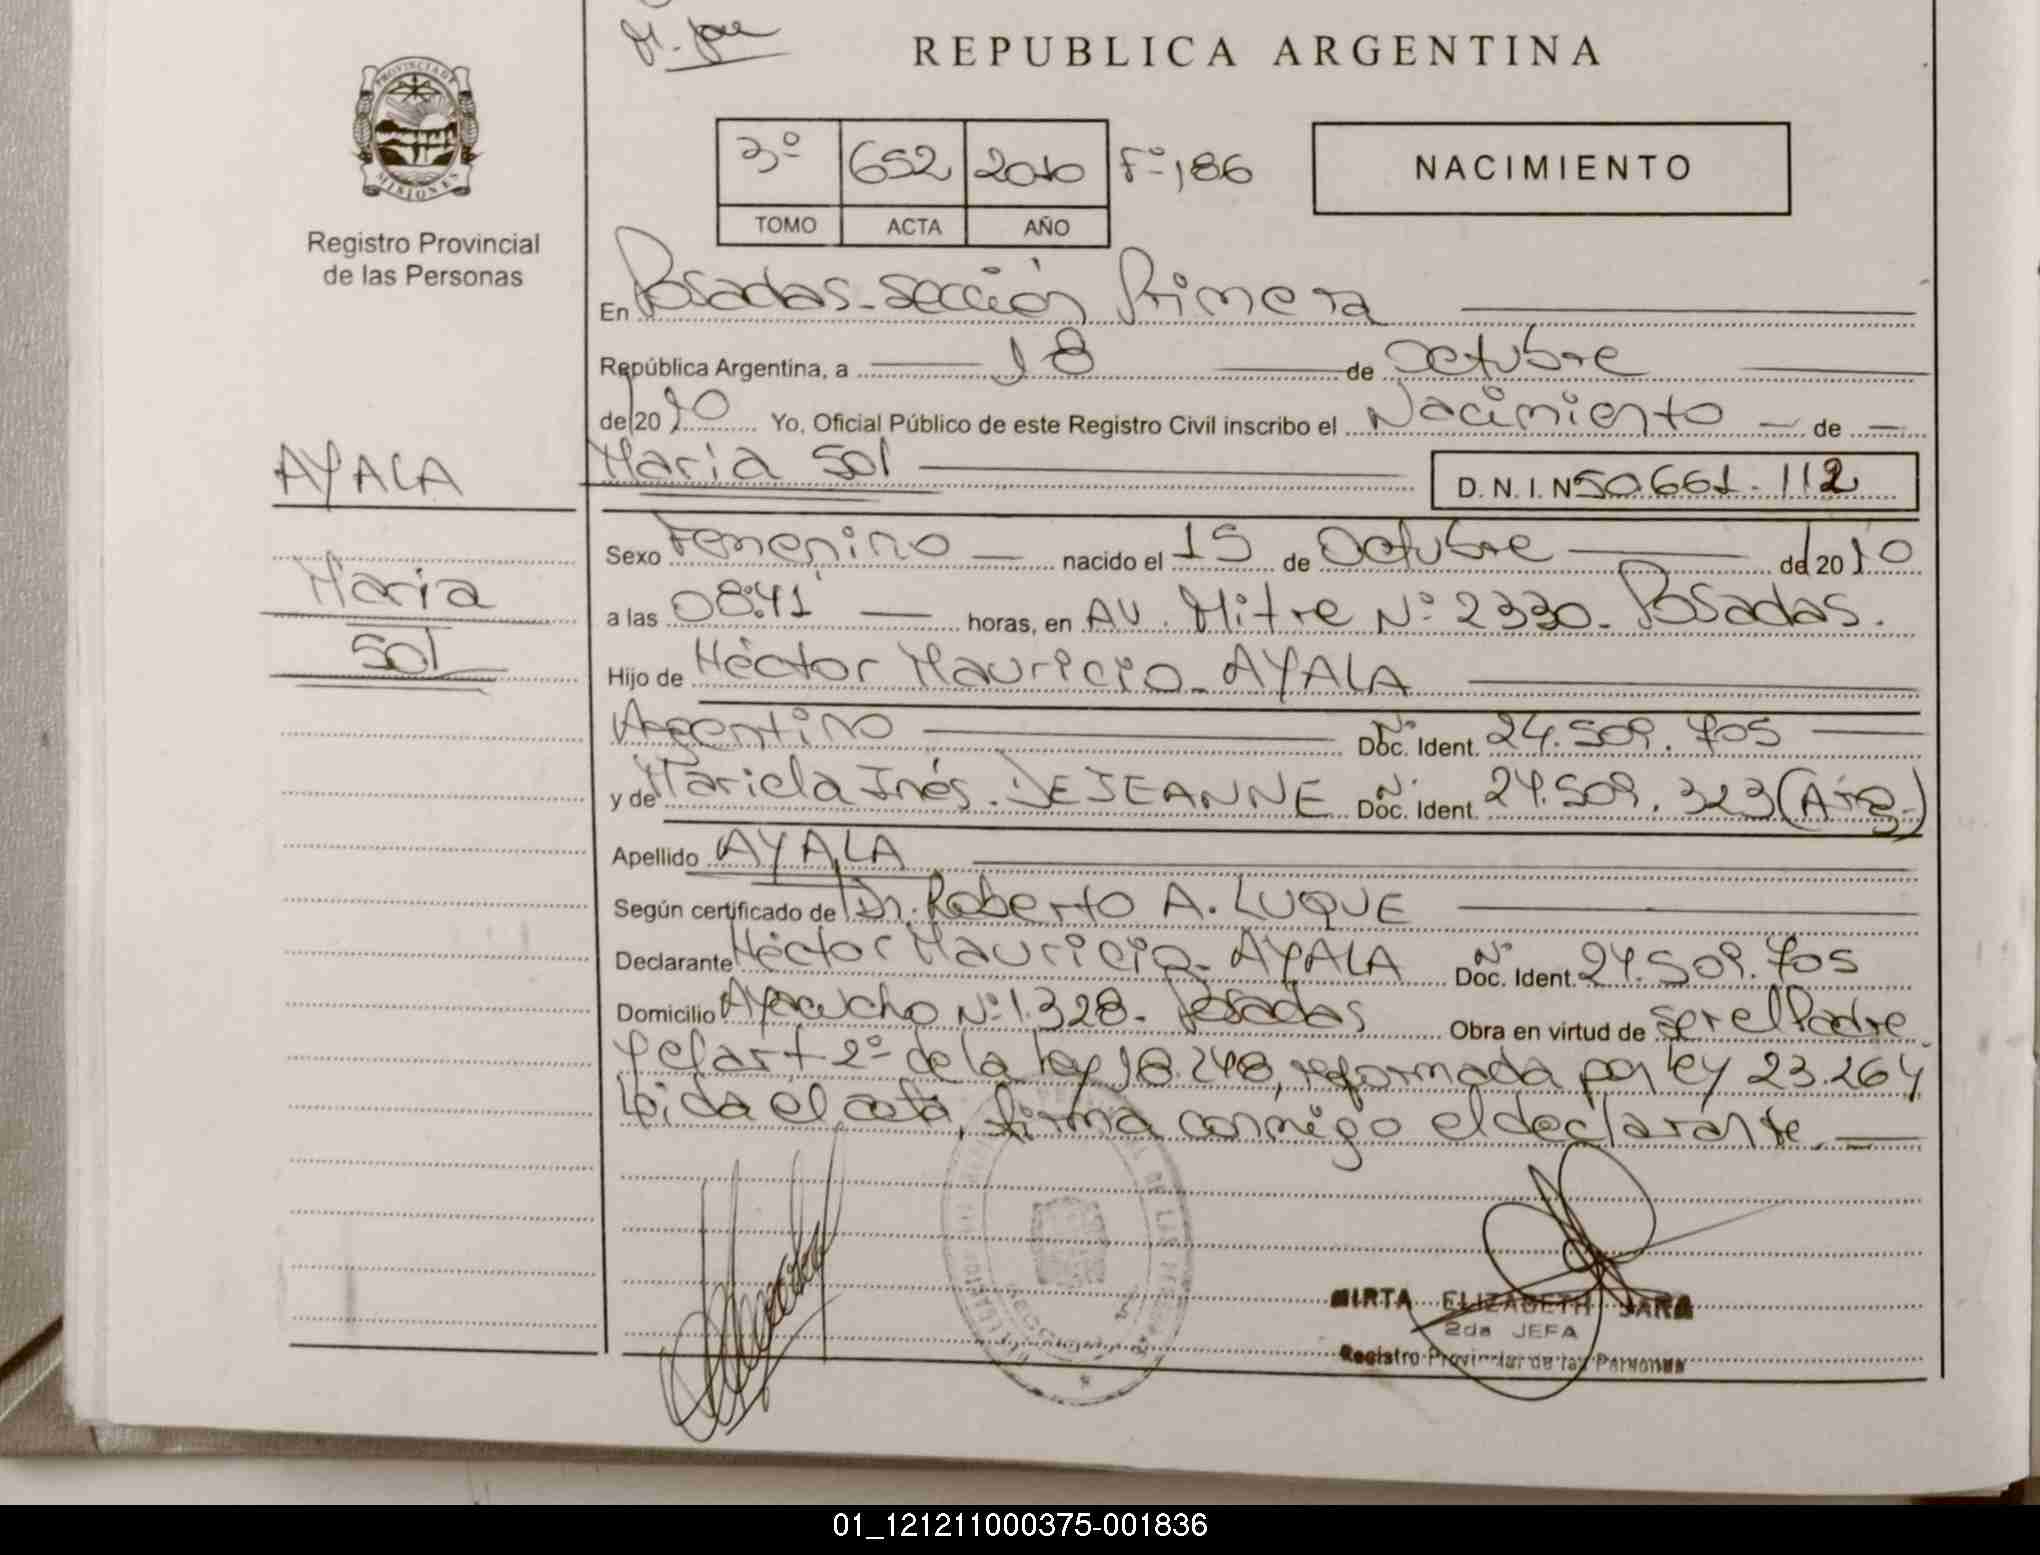 REPUBLICA ARGENTINA
PROVINCIA DE
MISIONES
Registro Provincial
de las Personas
3º 652 2010 Fº 186
TOMO ACTA AÑO
NACIMIENTO
En Posadas - Sección Primera
República Argentina, a 18 de Octubre
de 2010 Yo, Oficial Público de este Registro Civil inscribo el Nacimiento de
AYALA
Maria Sol
D. N. I. Nº 50.661.112
Maria
Sol
Sexo Femenino nacido el 15 de Octubre de 2010
a las 08:41 horas, en AV. Mitre Nº 2330 - Posadas.
Hijo de Héctor Mauricio - AYALA
Argentino Nº Doc. Ident. 24.509.705
y de Mariela Inés. DEJEANNE Nº Doc. Ident. 24.509.323 (Arg.)
Apellido AYALA
Según certificado de Dr. Roberto A. LUQUE
Declarante Héctor Mauricio - AYALA Nº Doc. Ident. 24.509.705
Domicilio Ayacucho Nº 1.328 - Posadas Obra en virtud de ser el Padre
y el art 2º de la ley 18.248, reformada por ley 23.264
Leida el acta, firma conmigo el declarante.
MIRTA ELIZABETH SARA
2da JEFA
Registro Provincial de las Personas
01_121211000375-001836